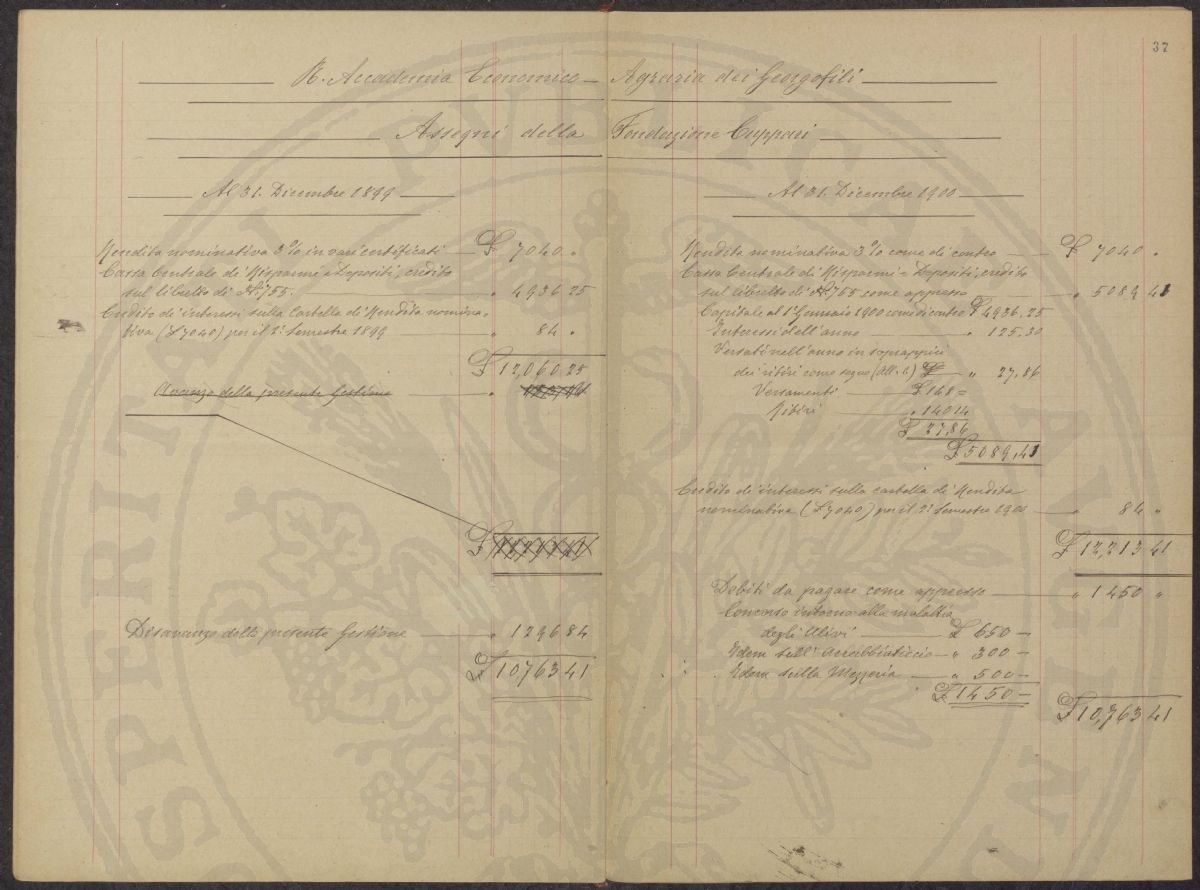 37
R. Accademia Economico - Agraria dei Georgofili
Assegni della Fondazione Cuppari
Al 31. Dicembre 1899
Rendita nominativa 3% in vari certificati £ 7040 "
Cassa Centrale di Risparmi e Depositi, credito
sul libretto di No. 755. " 4936 25
Credito di interessi sulla Cartella di Rendita nomina-
tiva (£ 7040) per il 2° Semestre 1899 " 84 "
£ 12,060 25
Avanzo della presente Gestione "
£
Disavanzo della presente Gestione " 1296 84
£ 10763 41
Al 31. Dicembre 1900
Rendita nominativa 3% come di contro £ 7040 "
Cassa Centrale di Risparmi e Depositi, credito
sul libretto di No. 755 come appresso " 5089 41
Capitale al 1° Gennaio 1900 come di contro £ 4936.25
Interessi dell'anno " 125.30
Versati nell'anno in soprappiù
dei ritiri come segue (All. a.) " 27.86
Versamenti £ 168 =
Ritiri " 140 14
£ 27,86
£ 5089,41
Credito di interessi sulla cartella di Rendita
nominativa (£ 7040) per il 2° Semestre 1900 " 84 "
£ 12,213 41
Debiti da pagare come appresso " 1450 "
Concorso intorno alla malattia
degli Olivi £ 650 -
Idem sull' Acrabbiaticcio " 300 -
Idem sulla Mezzeria " 500 -
£ 1450 -
£ 10,763 41
SPERITATI PVBLICAE AVGEN